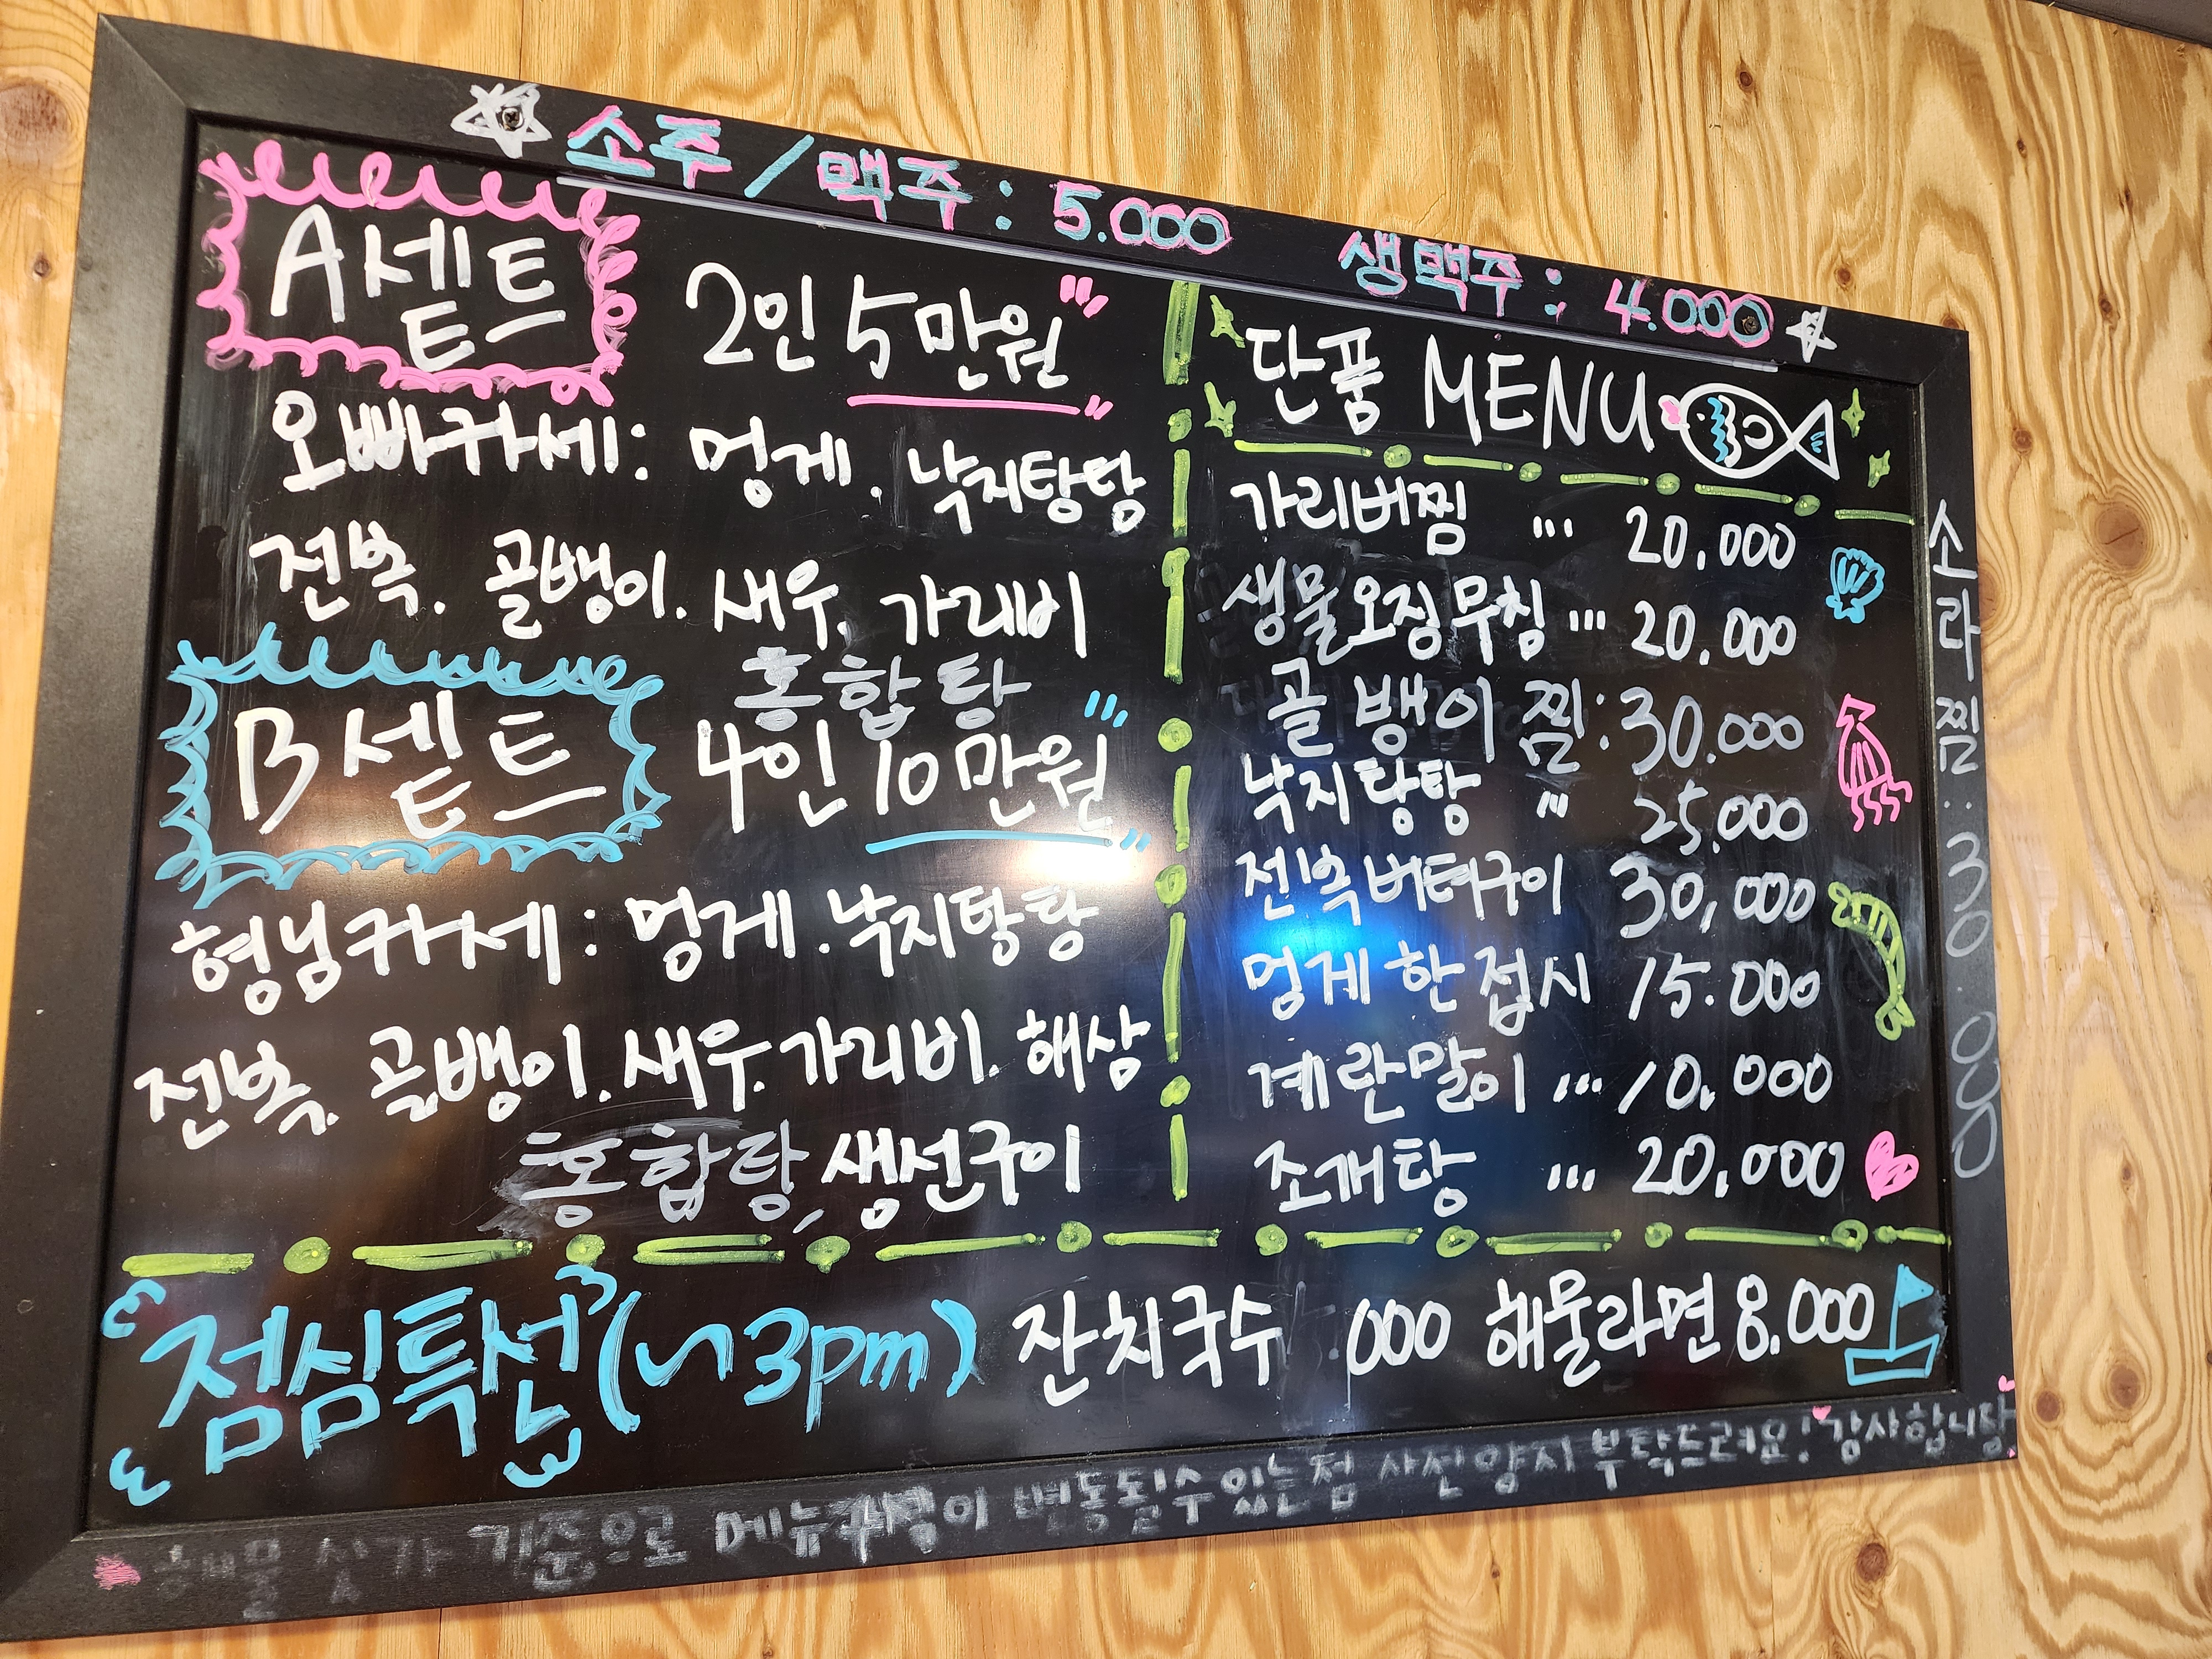 소주 / 맥주 : 5.000 생맥주 : 4.000
A세트 2인 5만원
오빠카세 : 멍게 . 낙지탕탕
전복 . 골뱅이 . 새우 . 가리비
홍합탕
B세트 4인 10만원
형님카세 : 멍게 . 낙지탕탕
전복 . 골뱅이 . 새우 . 가리비 . 해삼
홍합탕, 생선구이
단품 MENU
가리버찜 ... 20,000
생물오징무침 ... 20,000
골뱅이 찜 : 30.000
낙지탕탕 ... 25,000
전복버터구이 30,000
멍게 한 접시 15.000
계란말이 ... 10,000
조개탕 ... 20,000
소라찜 : 30.000
점심특선 (~3pm) 잔치국수 000 해물라면 8.000
해물 싯가 기준으로 메뉴구성이 변동될수있는점 사전양지 부탁드려요! 감사합니당